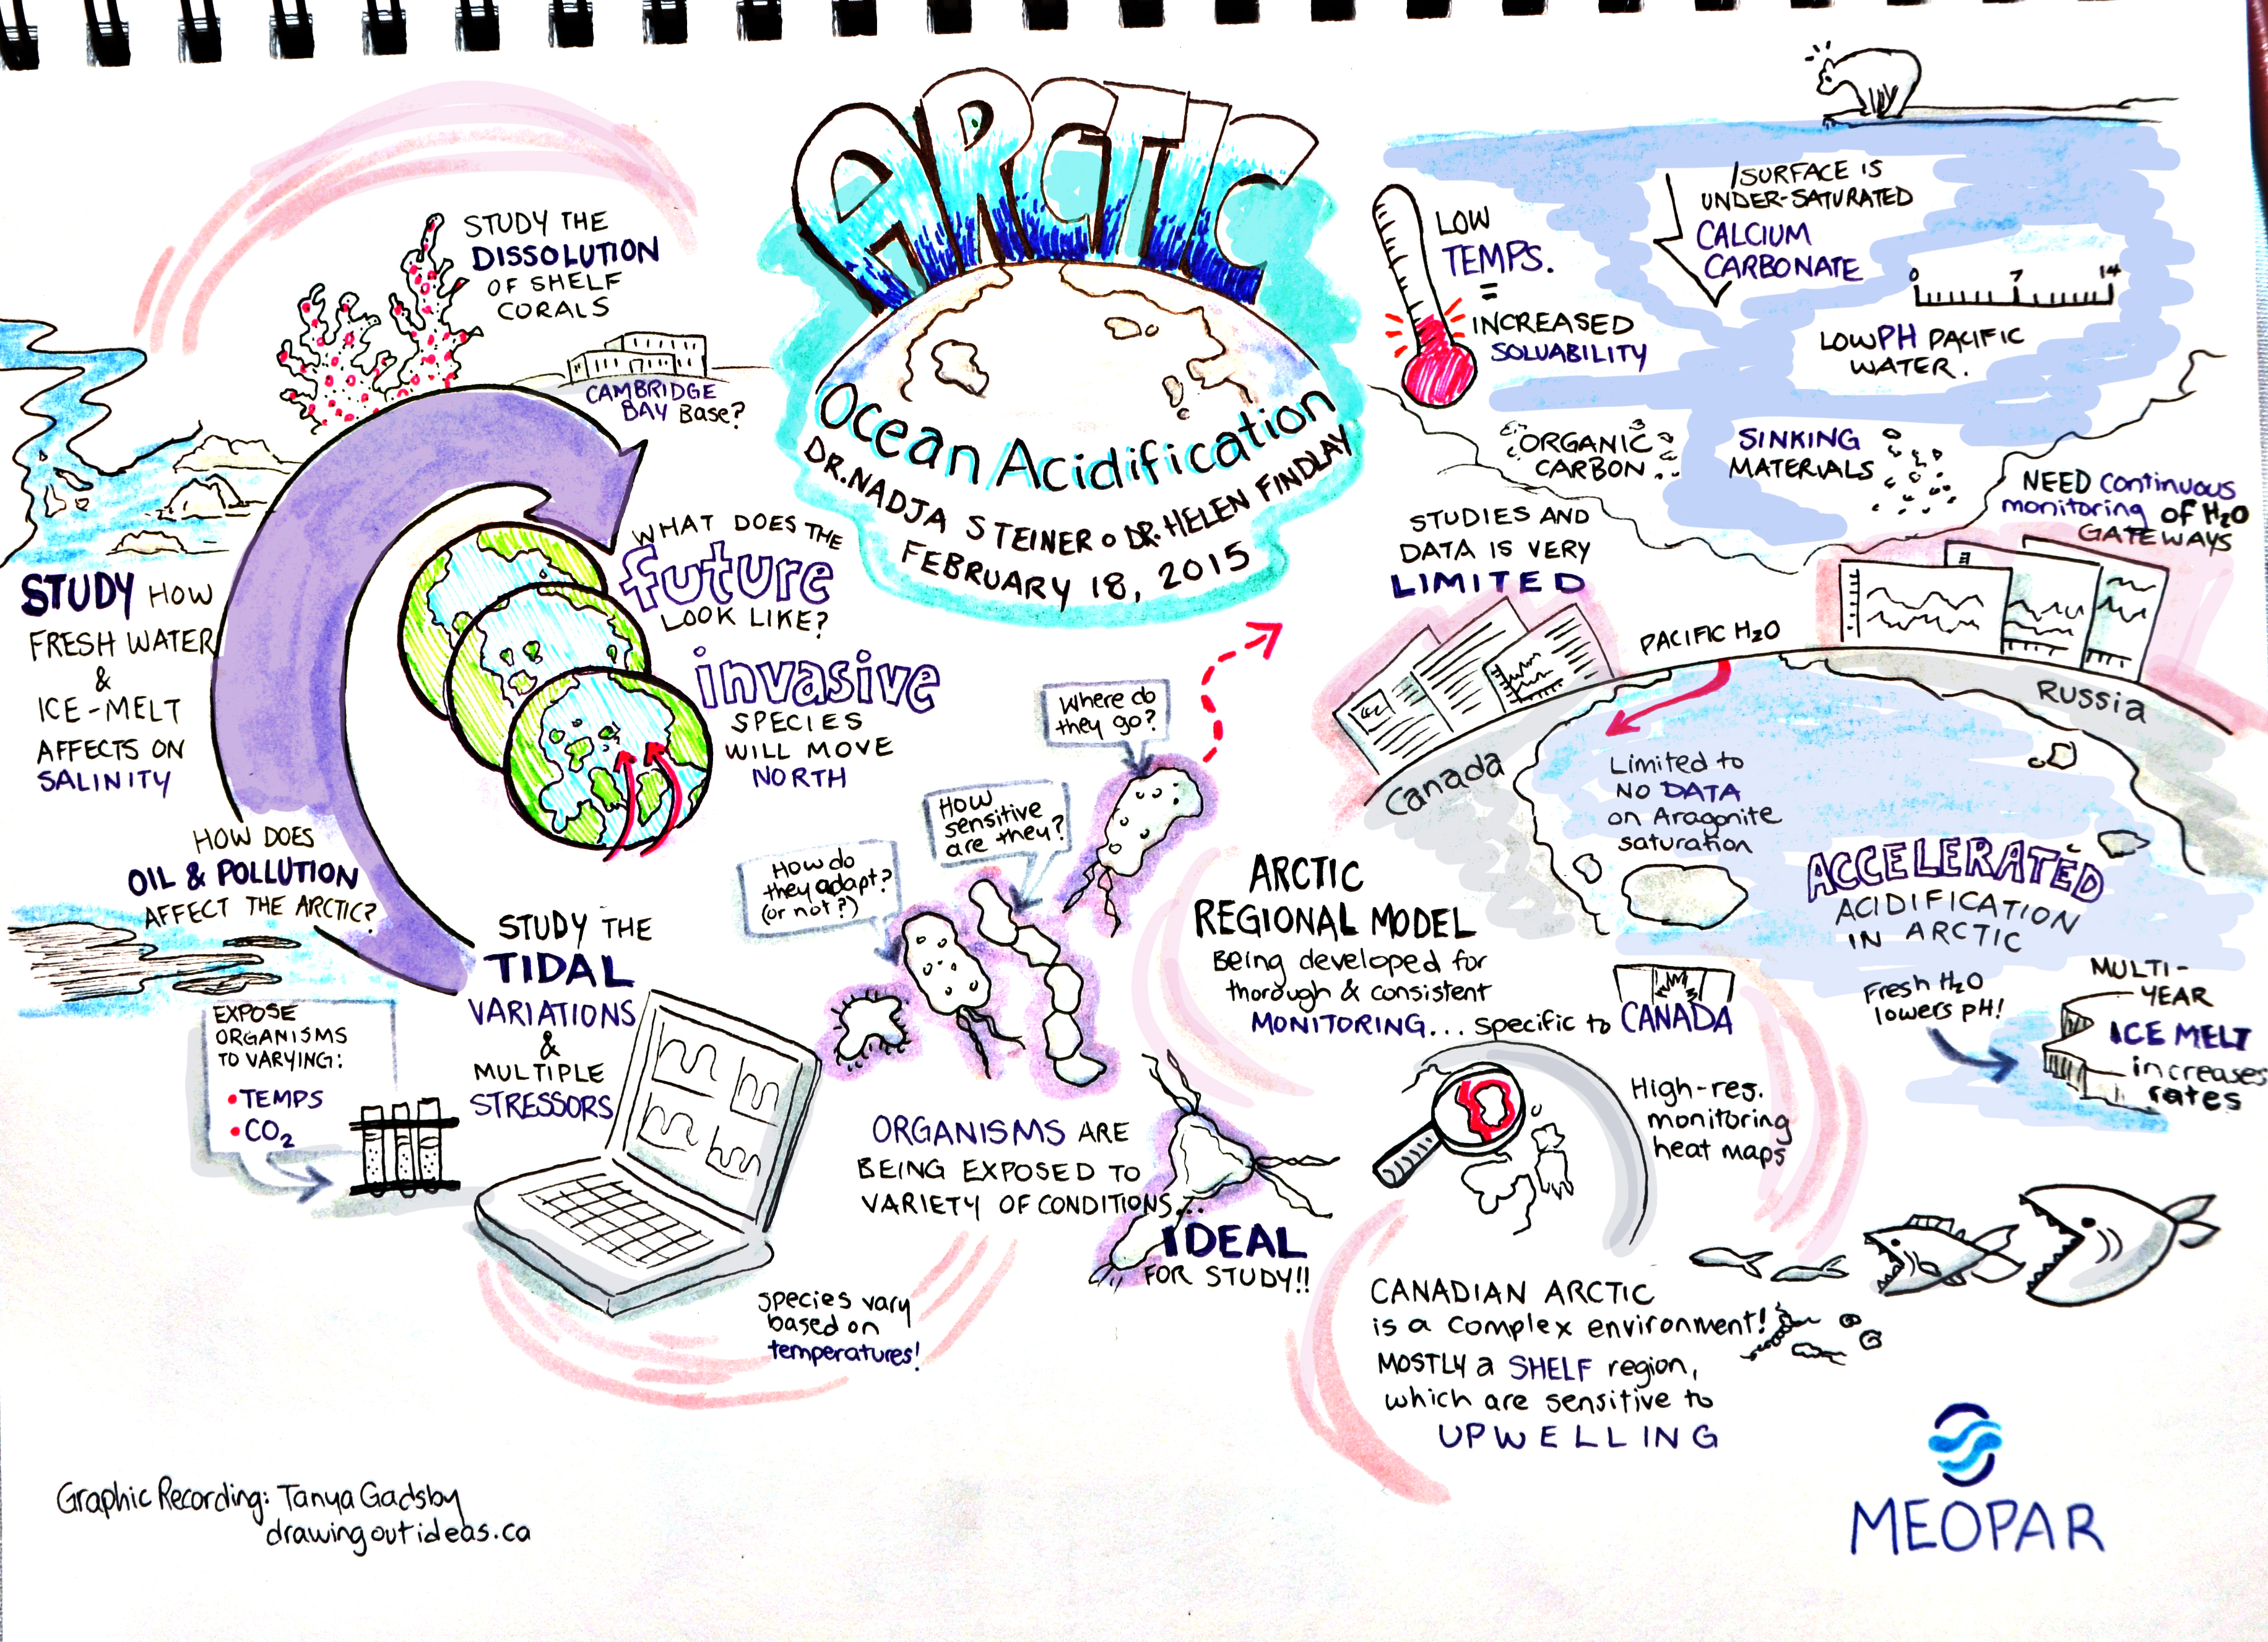 ARCTIC
Ocean Acidification
DR. NADJA STEINER o DR. HELEN FINDLAY
FEBRUARY 18, 2015
STUDY THE
DISSOLUTION
OF SHELF
CORALS
CAMBRIDGE
BAY Base?
STUDY HOW
FRESH WATER
&
ICE-MELT
AFFECTS ON
SALINITY
WHAT DOES THE
future
LOOK LIKE?
invasive
SPECIES
WILL MOVE
NORTH
HOW DOES
OIL & POLLUTION
AFFECT THE ARCTIC?
STUDY THE
TIDAL
VARIATIONS
&
MULTIPLE
STRESSORS
EXPOSE
ORGANISMS
TO VARYING:
• TEMPS
• CO2
Species vary
based on
temperatures!
How do
they adapt?
(or not?)
How
sensitive
are they?
Where do
they go?
ORGANISMS ARE
BEING EXPOSED TO
VARIETY OF CONDITIONS...
IDEAL
FOR STUDY!!
LOW
TEMPS.
=
INCREASED
SOLUABILITY
SURFACE IS
UNDER-SATURATED
CALCIUM
CARBONATE
0 7 14
LOW PH PACIFIC
WATER.
ORGANIC
CARBON
SINKING
MATERIALS
STUDIES AND
DATA IS VERY
LIMITED
NEED continuous
monitoring of H2O
GATEWAYS
PACIFIC H2O
Canada
Russia
Limited to
NO DATA
on Aragonite
saturation
ACCELERATED
ACIDIFICATION
IN ARCTIC
Fresh H2O
lowers pH!
MULTI-
YEAR
ICE MELT
increases
rates
ARCTIC
REGIONAL MODEL
Being developed for
thorough & consistent
MONITORING... specific to CANADA
High-res.
monitoring
heat maps
CANADIAN ARCTIC
is a complex environment!
MOSTLY a SHELF region,
which are sensitive to
UPWELLING
Graphic Recording: Tanya Gadsby
drawingoutideas.ca
MEOPAR